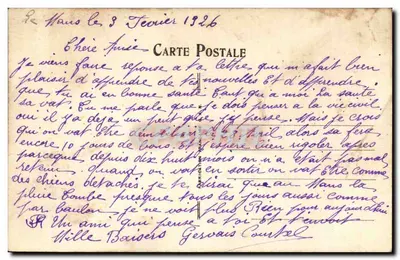 Mans le 3 Fevrier 1926
Chère Amie
CARTE POSTALE
Je viens faire reponse a ta lettre qui m'a fait bien
plaisir d'apprendre de tes nouvelles Et d'apprendre
que tu ai en bonne santé Tant qu'a moi La santé
sa vat. Tu me parle que je dois penser a la vie civil
oui il y a deja un petit que j'y pense. Mais je crois
qu'on vat Etre alors sa fera
encore 10 jours de Et j'espere bien rigoler apres
parceque depuis dix huit mois on n'a Etait pas mal
retenu. quand on vat en sortir on vat Etre comme
des chiens detachés. je te dirai que au Mans la
pluie tombe presque tous les jours aussi comme
par je ne voit plus Rien pour aujourd'hui
Un ami qui pense a toi Et t'envoit
Mille Baisers Gervais Courtel